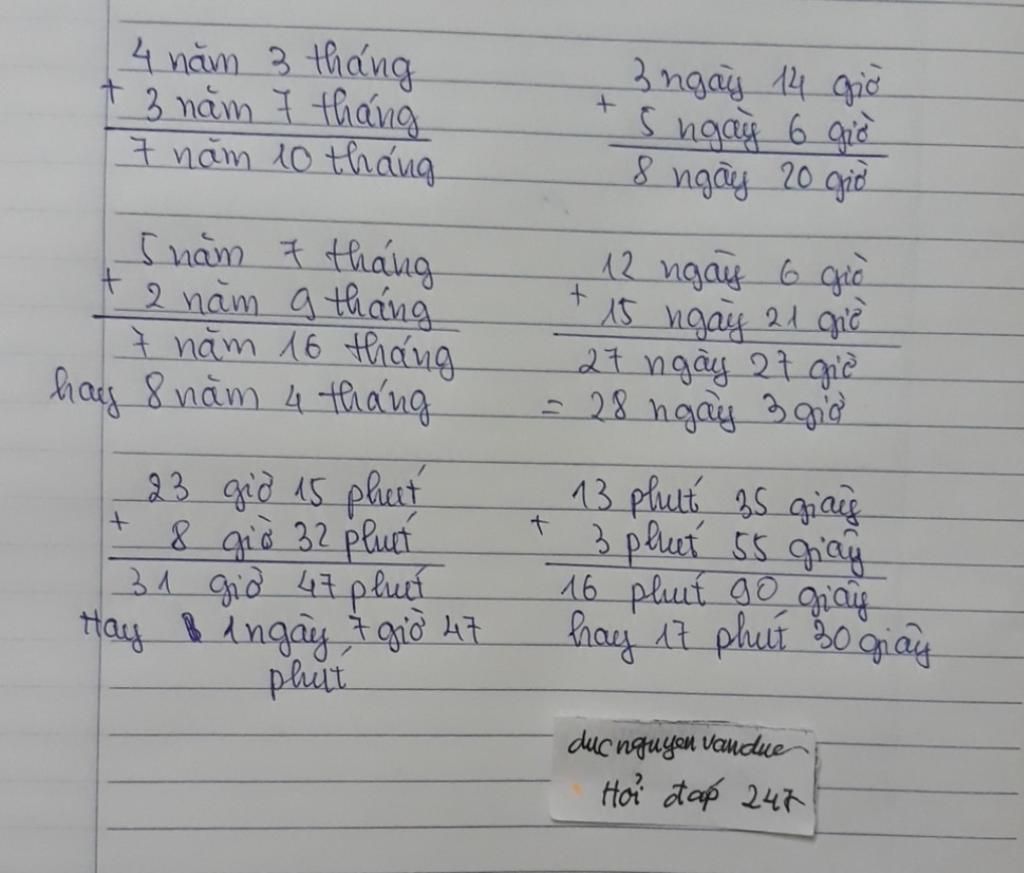 4 năm 3 tháng
+ 3 năm 7 tháng
7 năm 10 tháng
3 ngày 14 giờ
+ 5 ngày 6 giờ
8 ngày 20 giờ
5 năm 7 tháng
+ 2 năm 9 tháng
7 năm 16 tháng
hay 8 năm 4 tháng
12 ngày 6 giờ
+ 15 ngày 21 giờ
27 ngày 27 giờ
= 28 ngày 3 giờ
23 giờ 15 phút
+ 8 giờ 32 phút
31 giờ 47 phút
Hay 1 ngày 7 giờ 47
phút
13 phút 35 giây
+ 3 phút 55 giây
16 phút 90 giây
hay 17 phút 30 giây
ducnguyenvanduc
Hỏi đáp 247